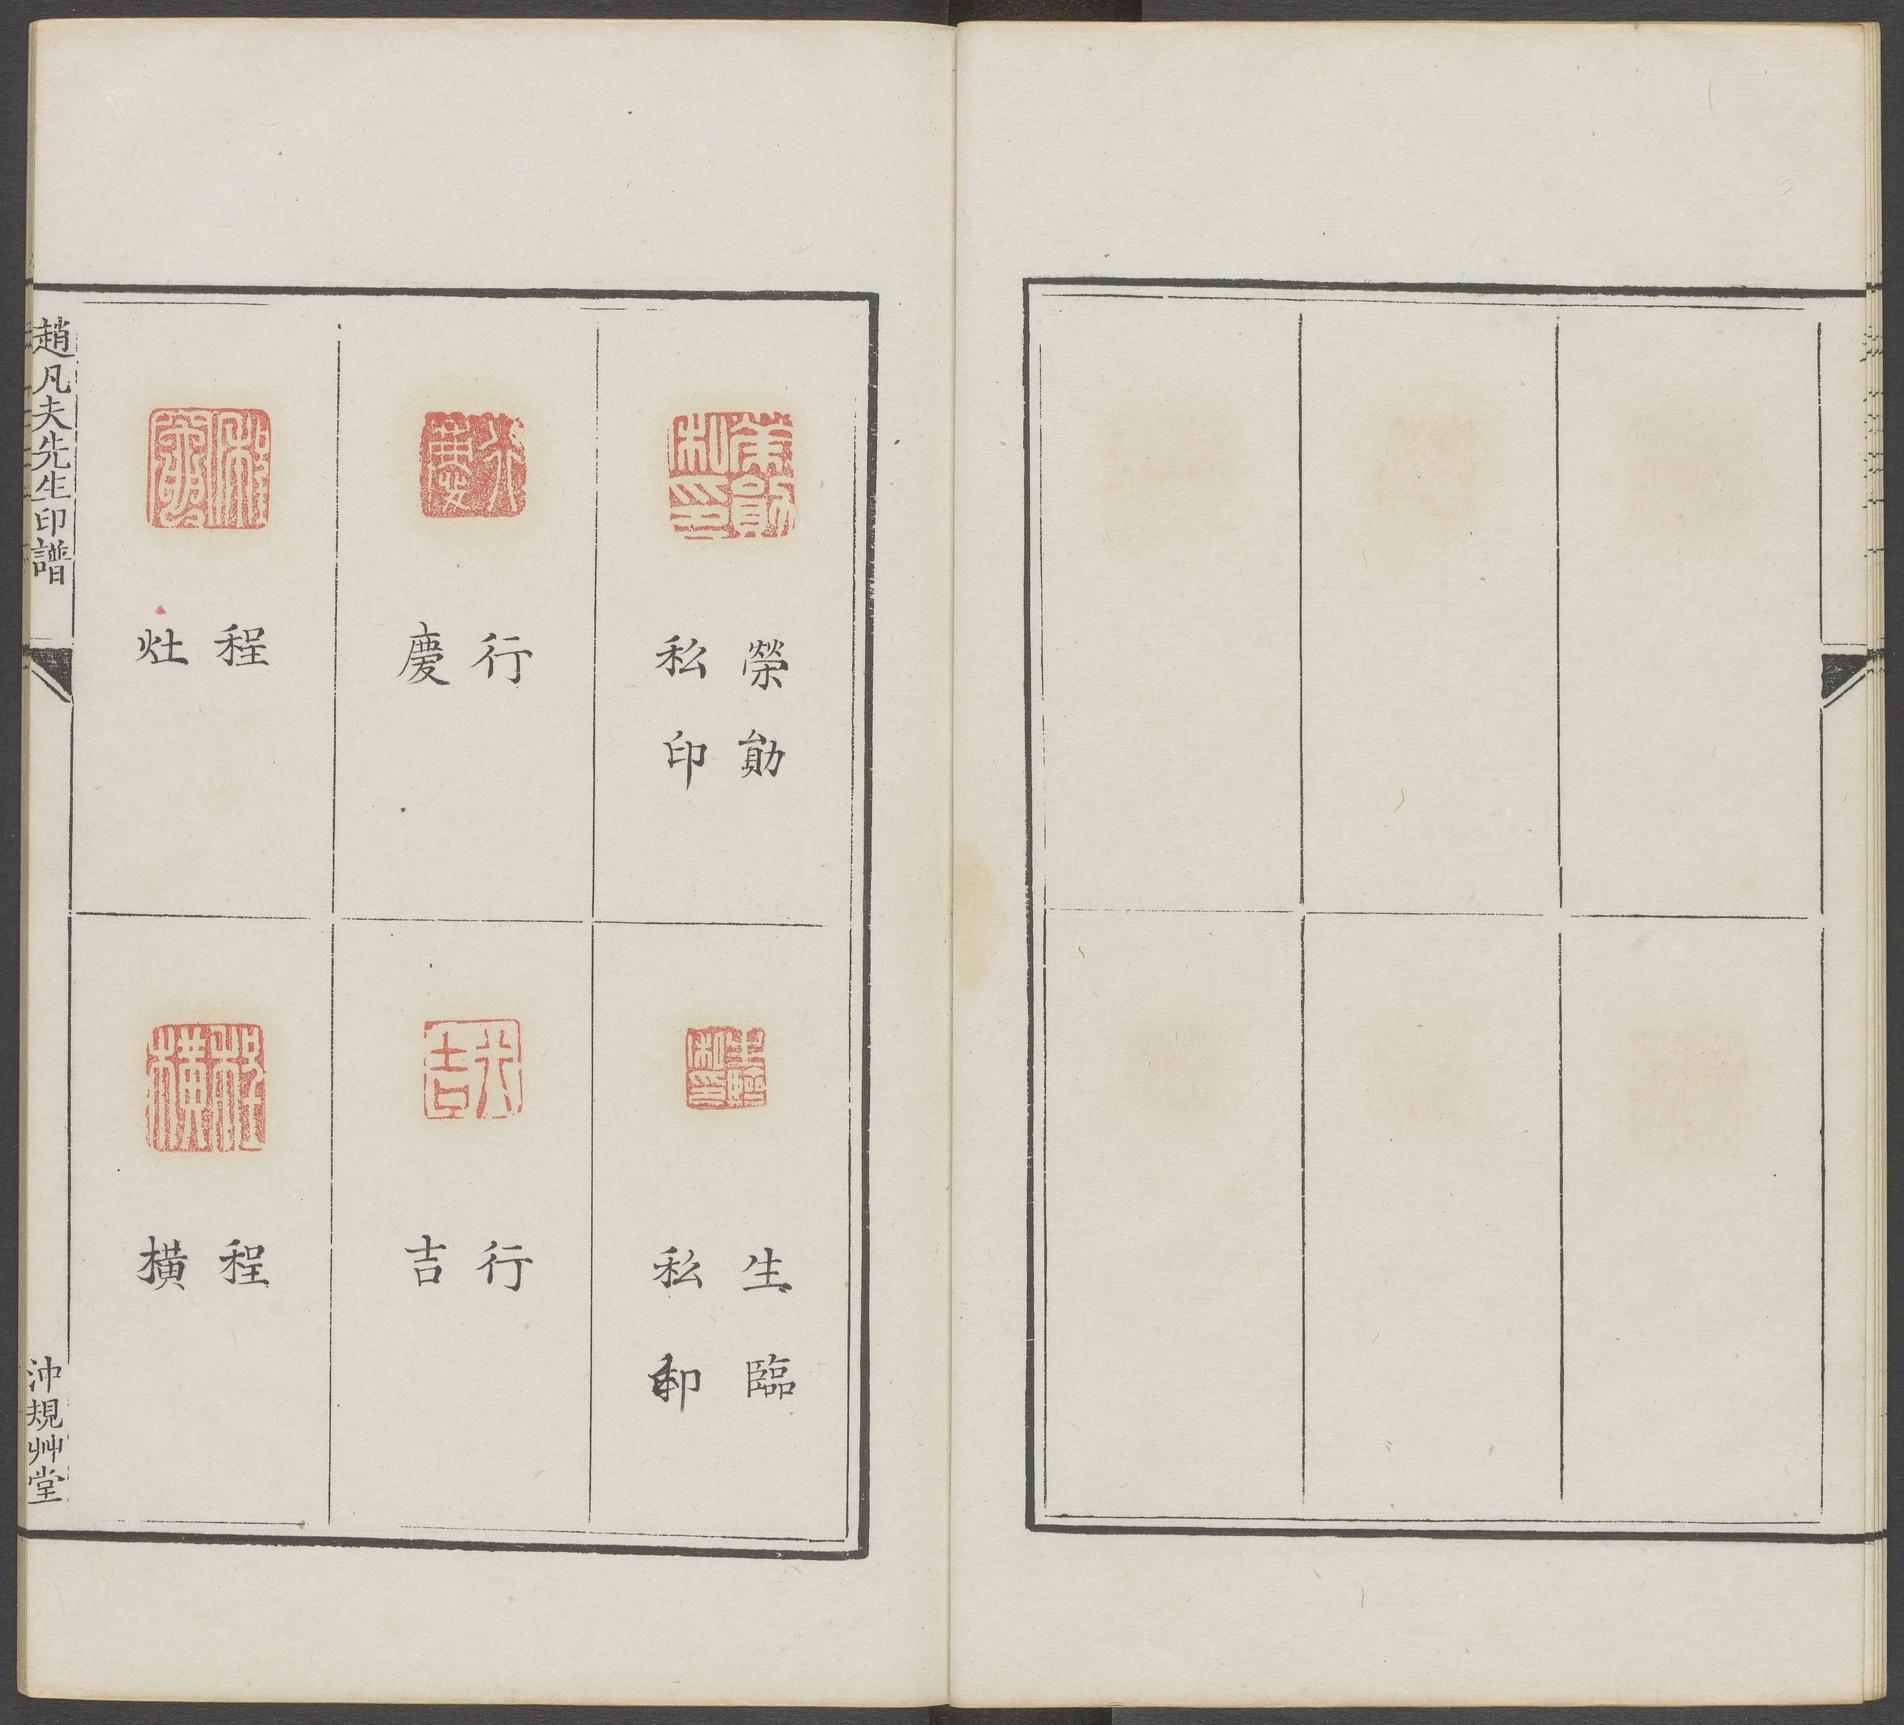 榮勛
私印
生臨
私印
行
慶
行
吉
程
灶
程
橫
趙凡夫先生印譜
沖規艸堂